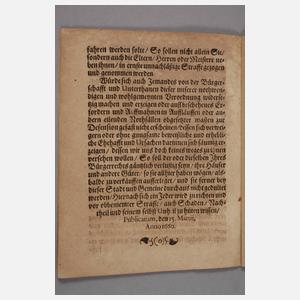 fahren werden solte/ So sollen nicht allein Sie/
sondern auch die Eltern/ Herren oder Meistere ne-
ben ihnen/ in ernste unnachläßige Straffe gezogen
und genommen werden.
Würde sich auch Jemandes von der Bürger-
schafft und Unterthanen dieser unserer nothwen-
digen und wohlgemeinten Verordnung widerse-
tzig machen und erzeigen oder auff beschehenes Er-
fordern und Auffmahnen in Aufläufften oder an-
dern eilenden Nothfällen obgesetzter massen zur
Defension gefast nicht erscheinen/ dessen sich verwe-
gern oder ohne gnugsame beweißliche und erhebli-
che Ehehafft und Ursachen darinnen sich säumig er-
zeigen/ dessen wir uns doch keines weges zu Jhnen
versehen wollen/ So soll der oder dieselben Jhres
Bürgerrechts gäntzlich verlustig seyn/ ihre Häuser
und andere Güter/ so sie allhier haben mögen/ als-
balde zuverkäuffen aufferleget/ und sie ferner bey
dieser Stadt und Gemeine durchaus nicht geduldet
werden/ Hiernach sich ein Jeder wird zu richten und
vor obbenenter Straffe/ auch Schaden/ Nach-
theil und seinem selbst Unheil zu hüten wissen/
Publicatum, den 15. Martii,
Anno 1660.